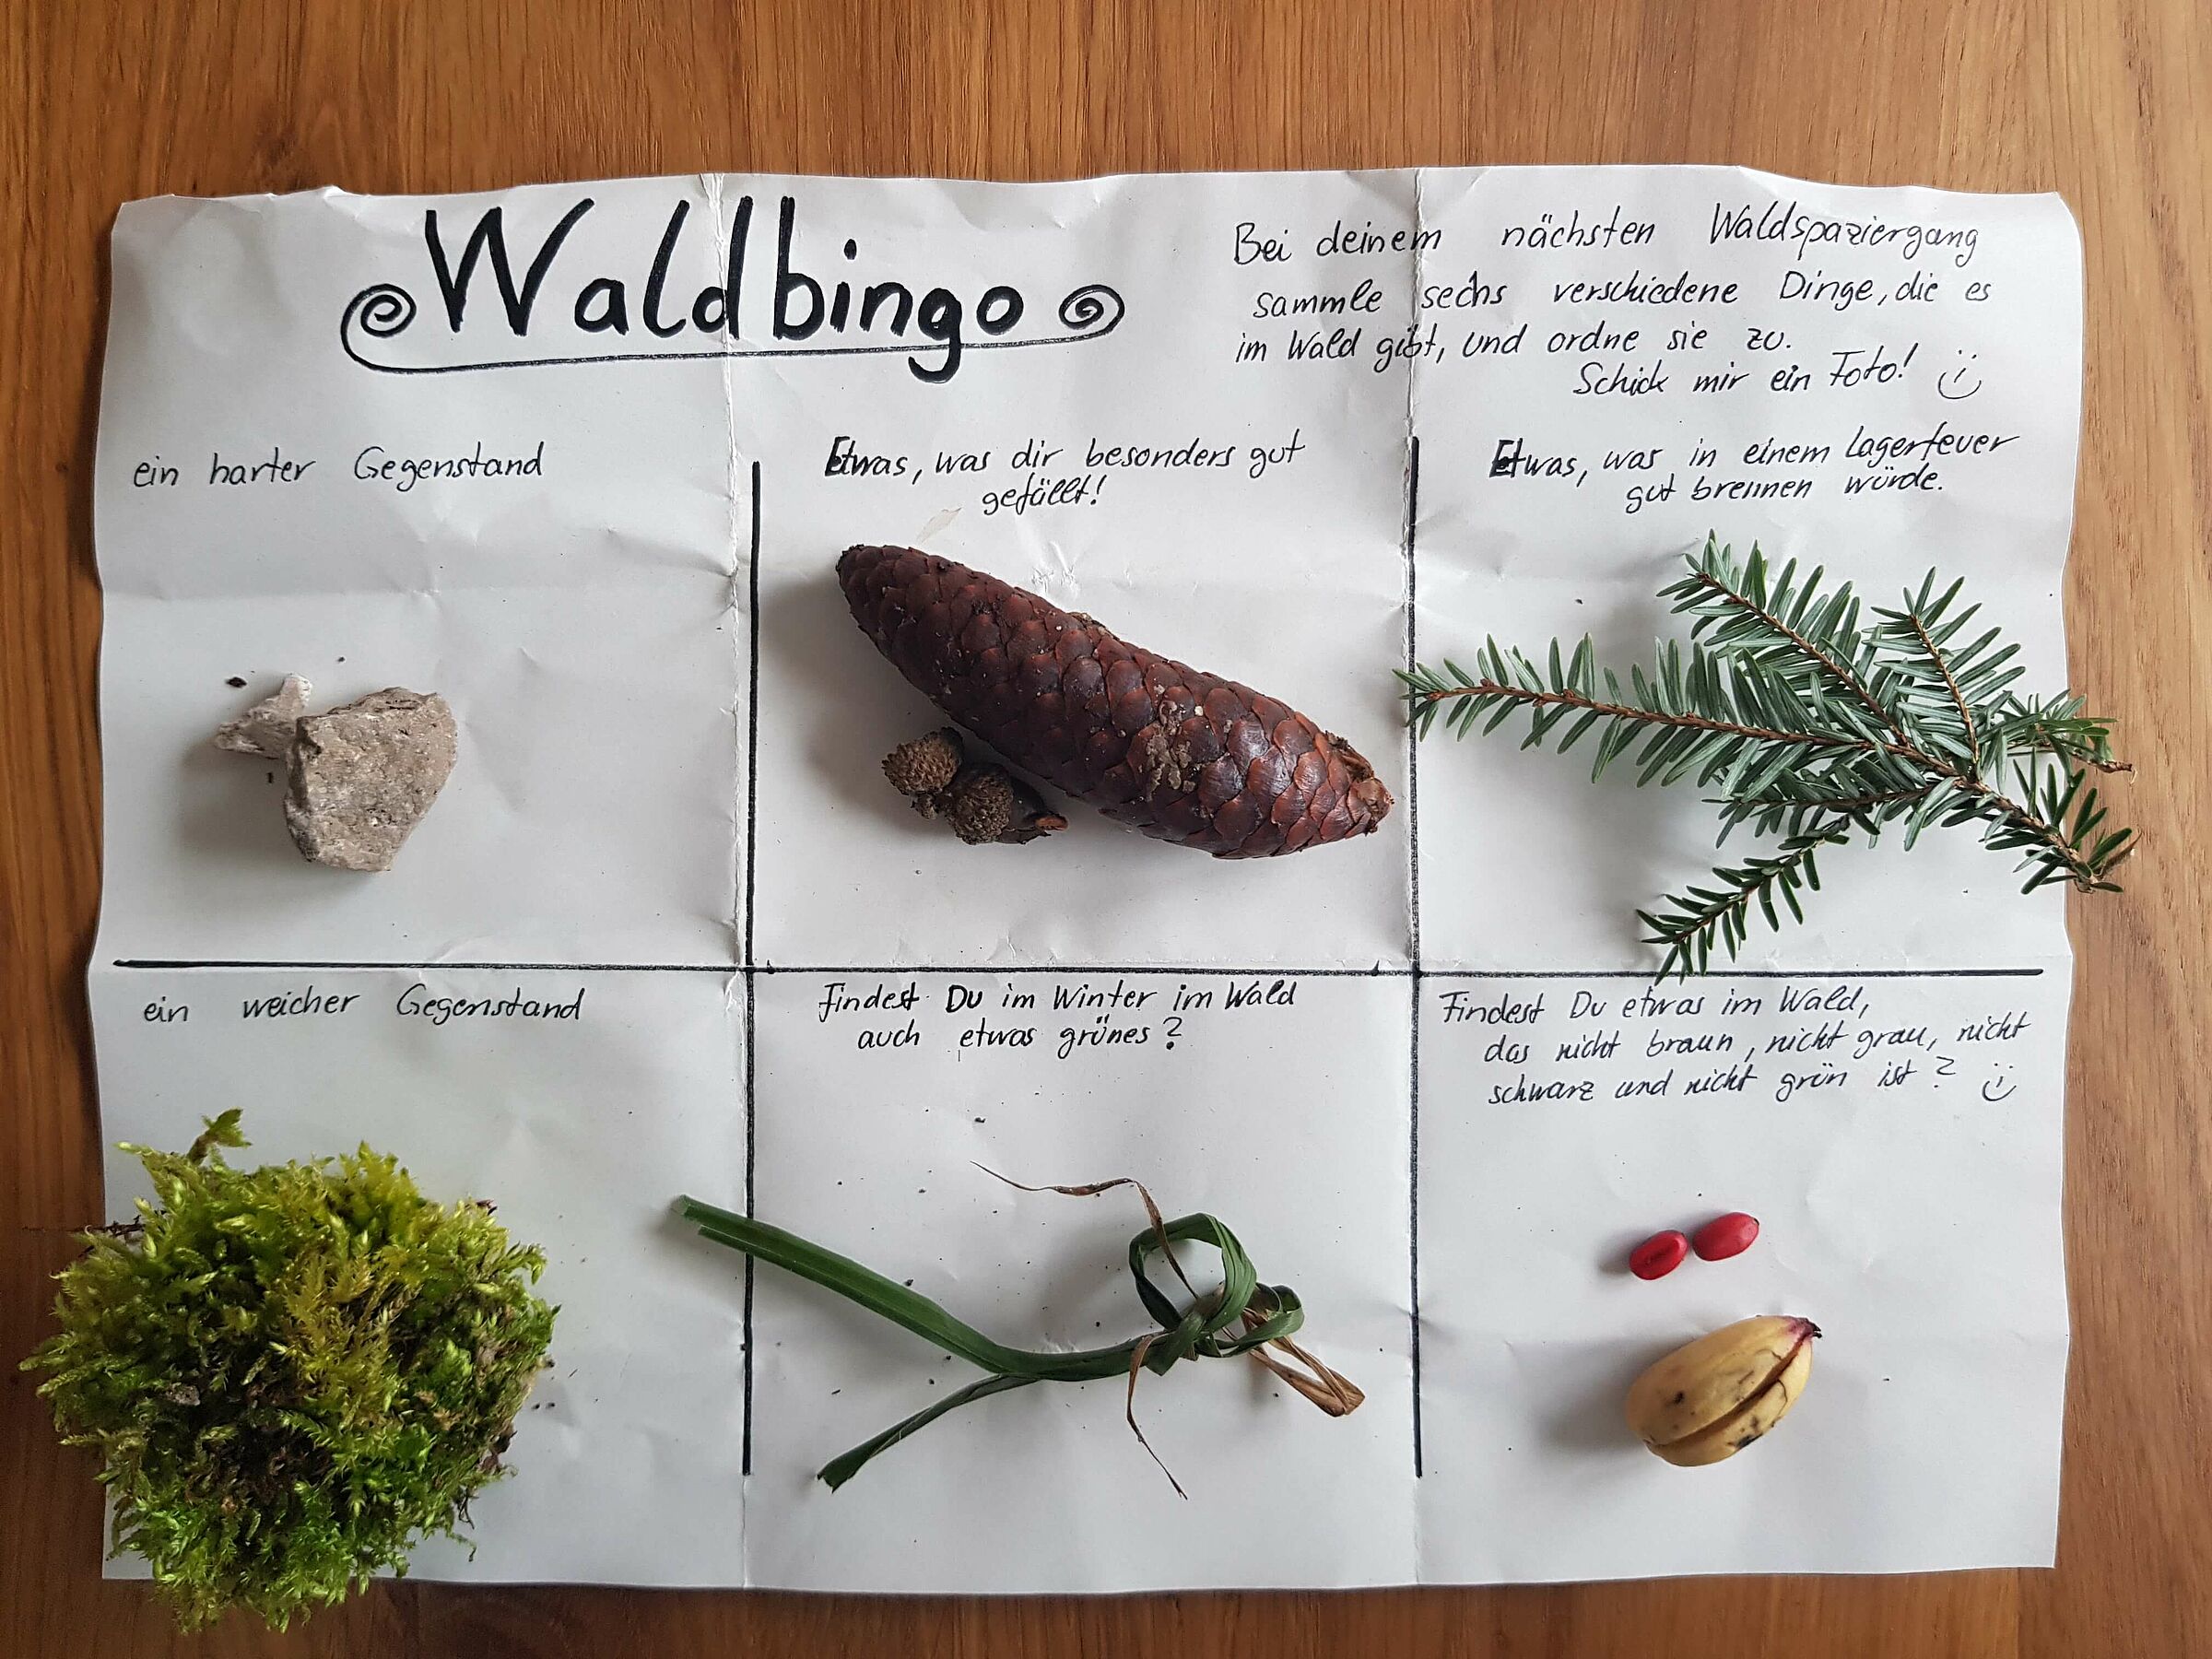 Waldbingo
Bei deinem nächsten Waldspaziergang
sammle sechs verschiedene Dinge, die es
im Wald gibt, und ordne sie zu.
Schick mir ein Foto!
ein harter Gegenstand
Etwas, was dir besonders gut
gefällt!
Etwas, was in einem Lagerfeuer
gut brennen würde.
ein weicher Gegenstand
Findest Du im Winter im Wald
auch etwas grünes?
Findest Du etwas im Wald,
das nicht braun, nicht grau, nicht
schwarz und nicht grün ist?